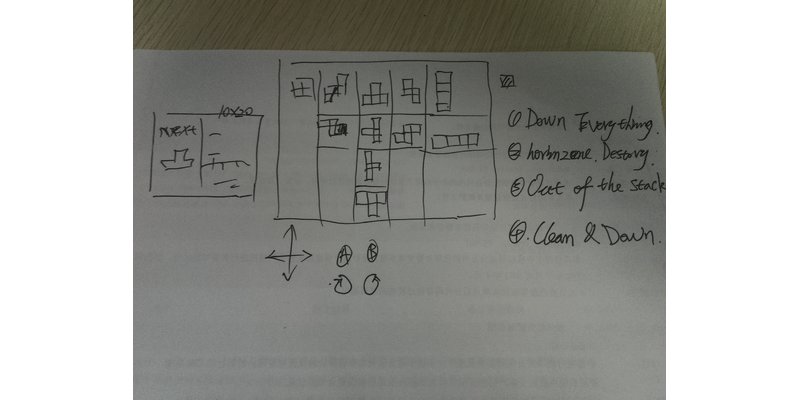 NEXT
10X20
① Down Everything.
② horizonzone. Destory.
③ Out of the stack
④. Clean & Down.
A B